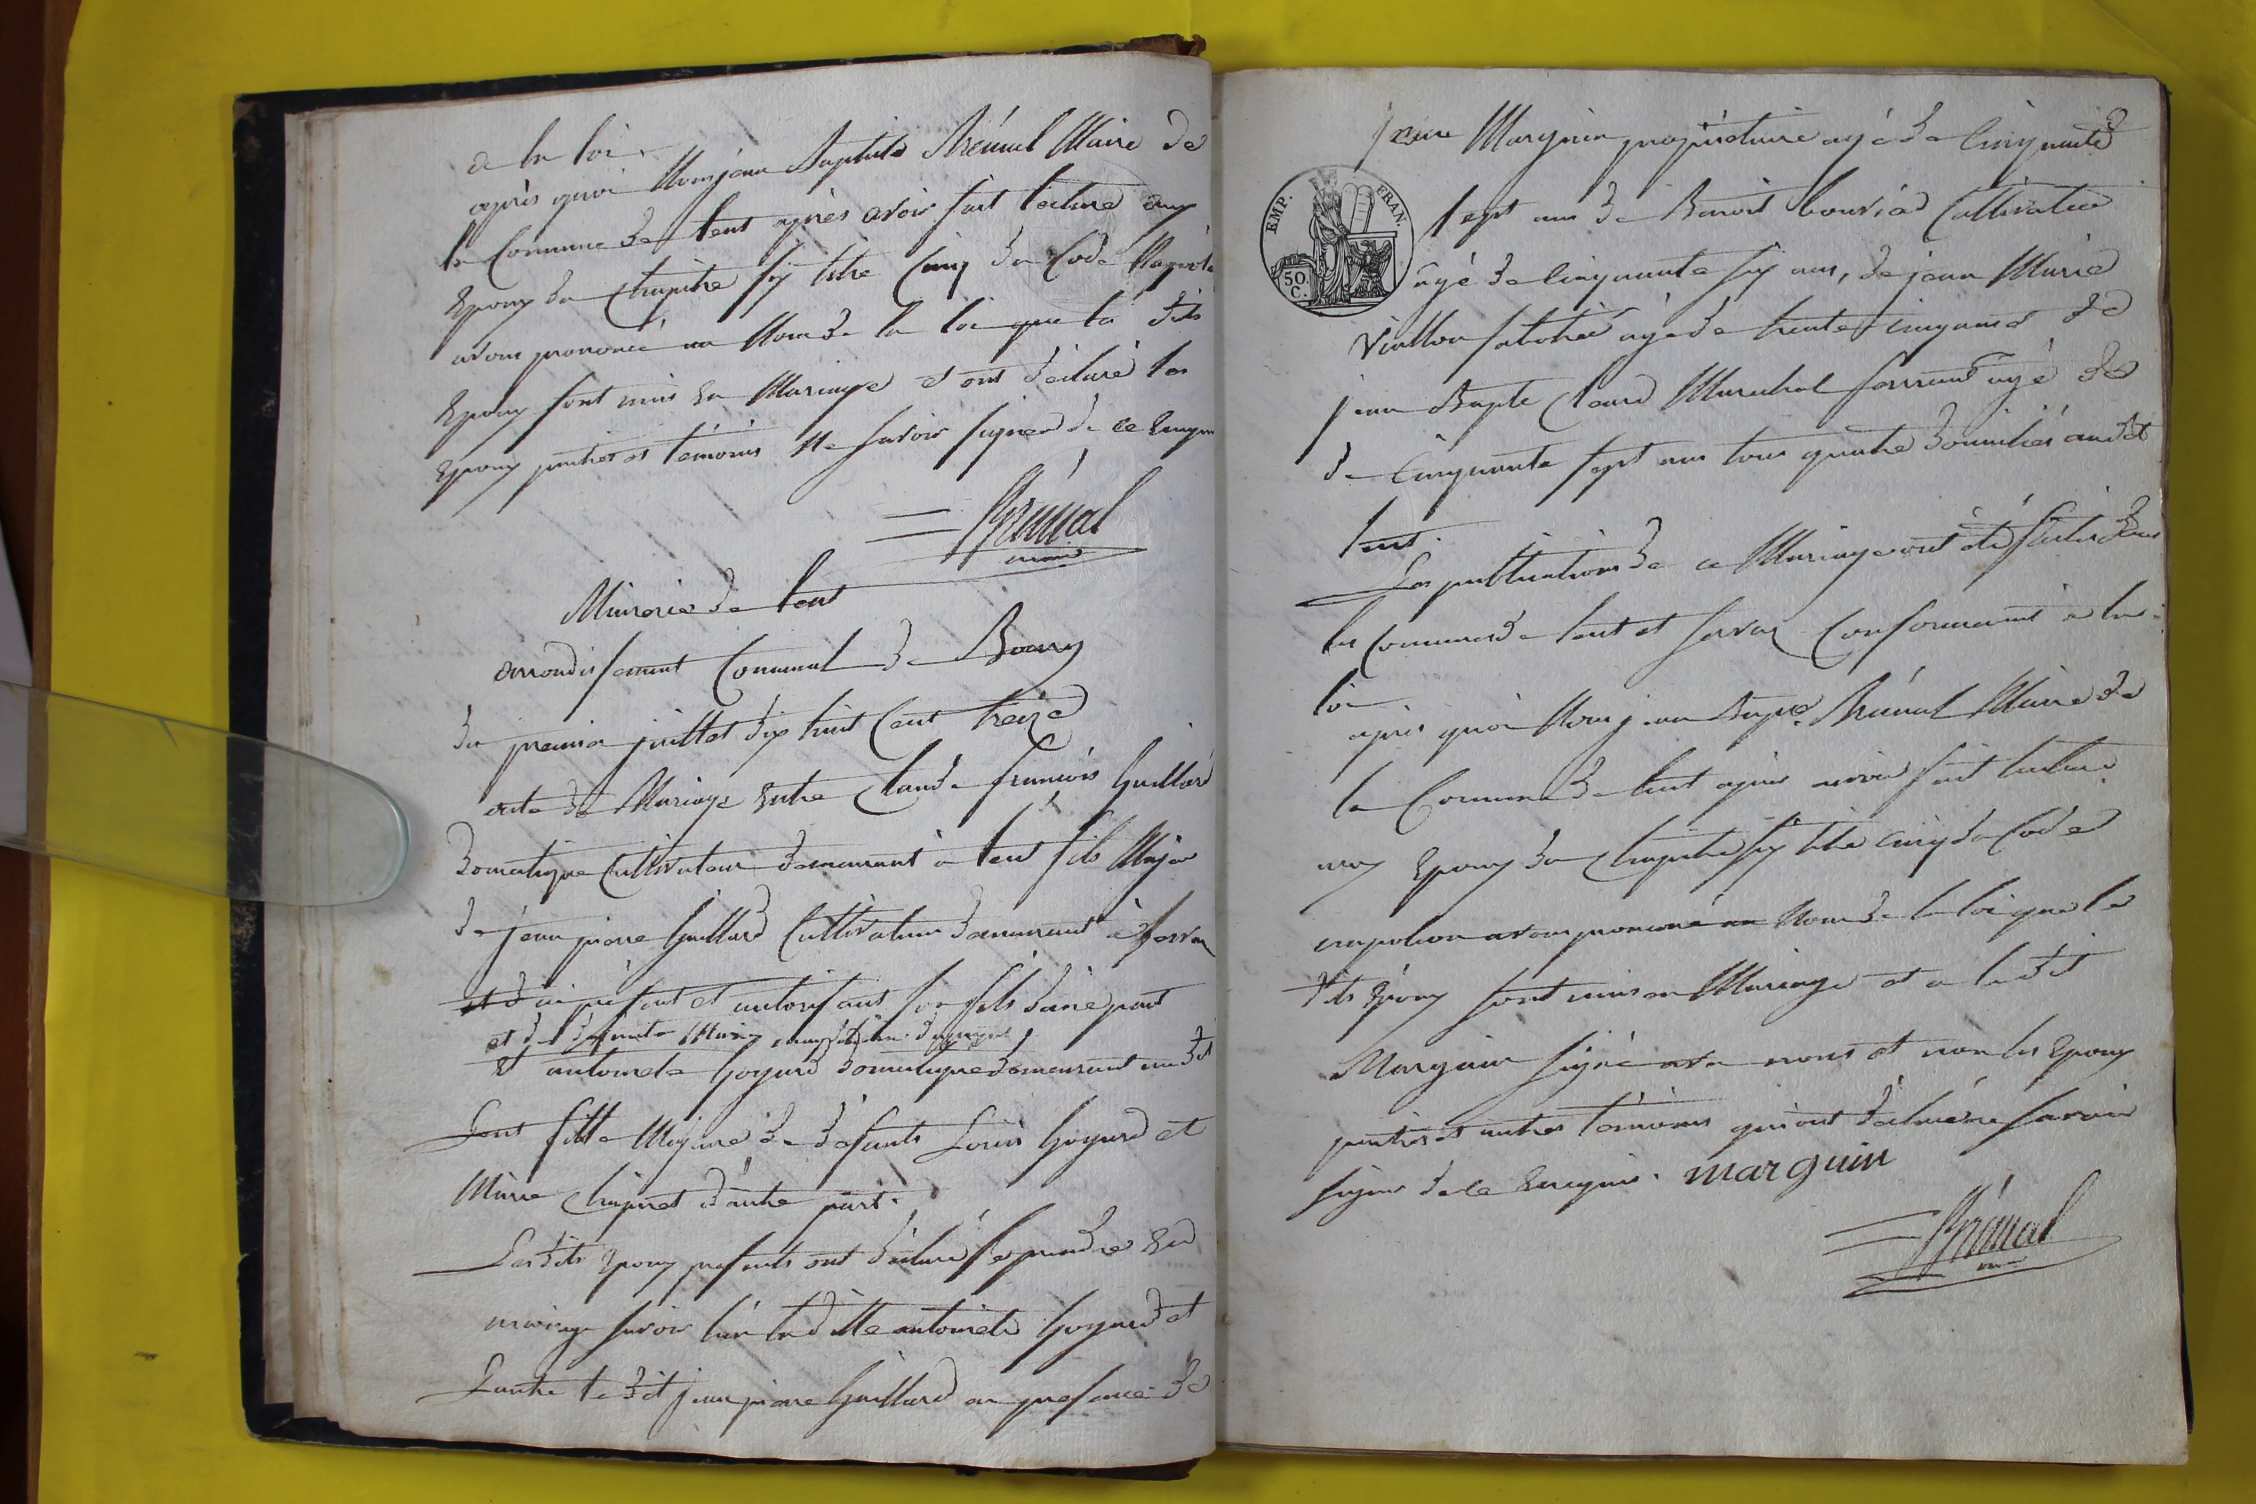 a la loi
après quoi Nous jean Baptiste Brémal Maire de
la Commune de lent après avoir fait lecture aux
Epoux du Chapitre six titre Cinq du Code
avons prononcé au Nom de la loi que les dits
Epoux sont unis En Mariage et ont déclaré les
Epoux parties et témoins Ne savoir signer de ce Enquis
Brémal
maire
Mairerie de lent
arrondissement Communal de Bourg
du premier juillet dix huit Cent treize
acte de Mariage Entre Claude françois Guillard
Domestique Cultivateur demeurant à lent fils Majeur
de jean pierre Guillard Cultivateur demeurant à servas
et d'ici présent et autorisant son fils d'une part
et de défunte Marie
Et antoinete Goyard domestique demeurant audit
Lent fille Majeure de défunts Louis Goyard et
Marie Chapuet d'autre part.
Lesdits Epoux présents ont déclaré se prendre En
mariage savoir l'un ladite antoinete Goyard et
L'autre le dit jean pierre Guillard en présence de
EMP. FRAN.
50 C.
Marguin propriétaire agé de Cinquante
sept ans de Benoit Cultivateur
agé de Cinquante six ans, de jean Marie
agé de trente cinq ans et de
jean Bapte Marechal ferrant agé de
de Cinquante sept ans tous quatre domiciliés audit
lent.
Les publications de ce Mariage ont été faites dans
les Communes de lent et servas Conformement a la
loi
après quoi Nous jean Bapte Brémal Maire de
la Commune de lent après avoir fait lecture
aux Epoux du Chapitre six titre cinq du Code
napoleon avons prononcé au Nom de la loi que les
dits Epoux sont unis en Mariage et a le dit
Marguin signé avec nous et non les Epoux
parties et autres témoins qui ont déclaré ne savoir
signer de ce Enquis. marguin
Brémal